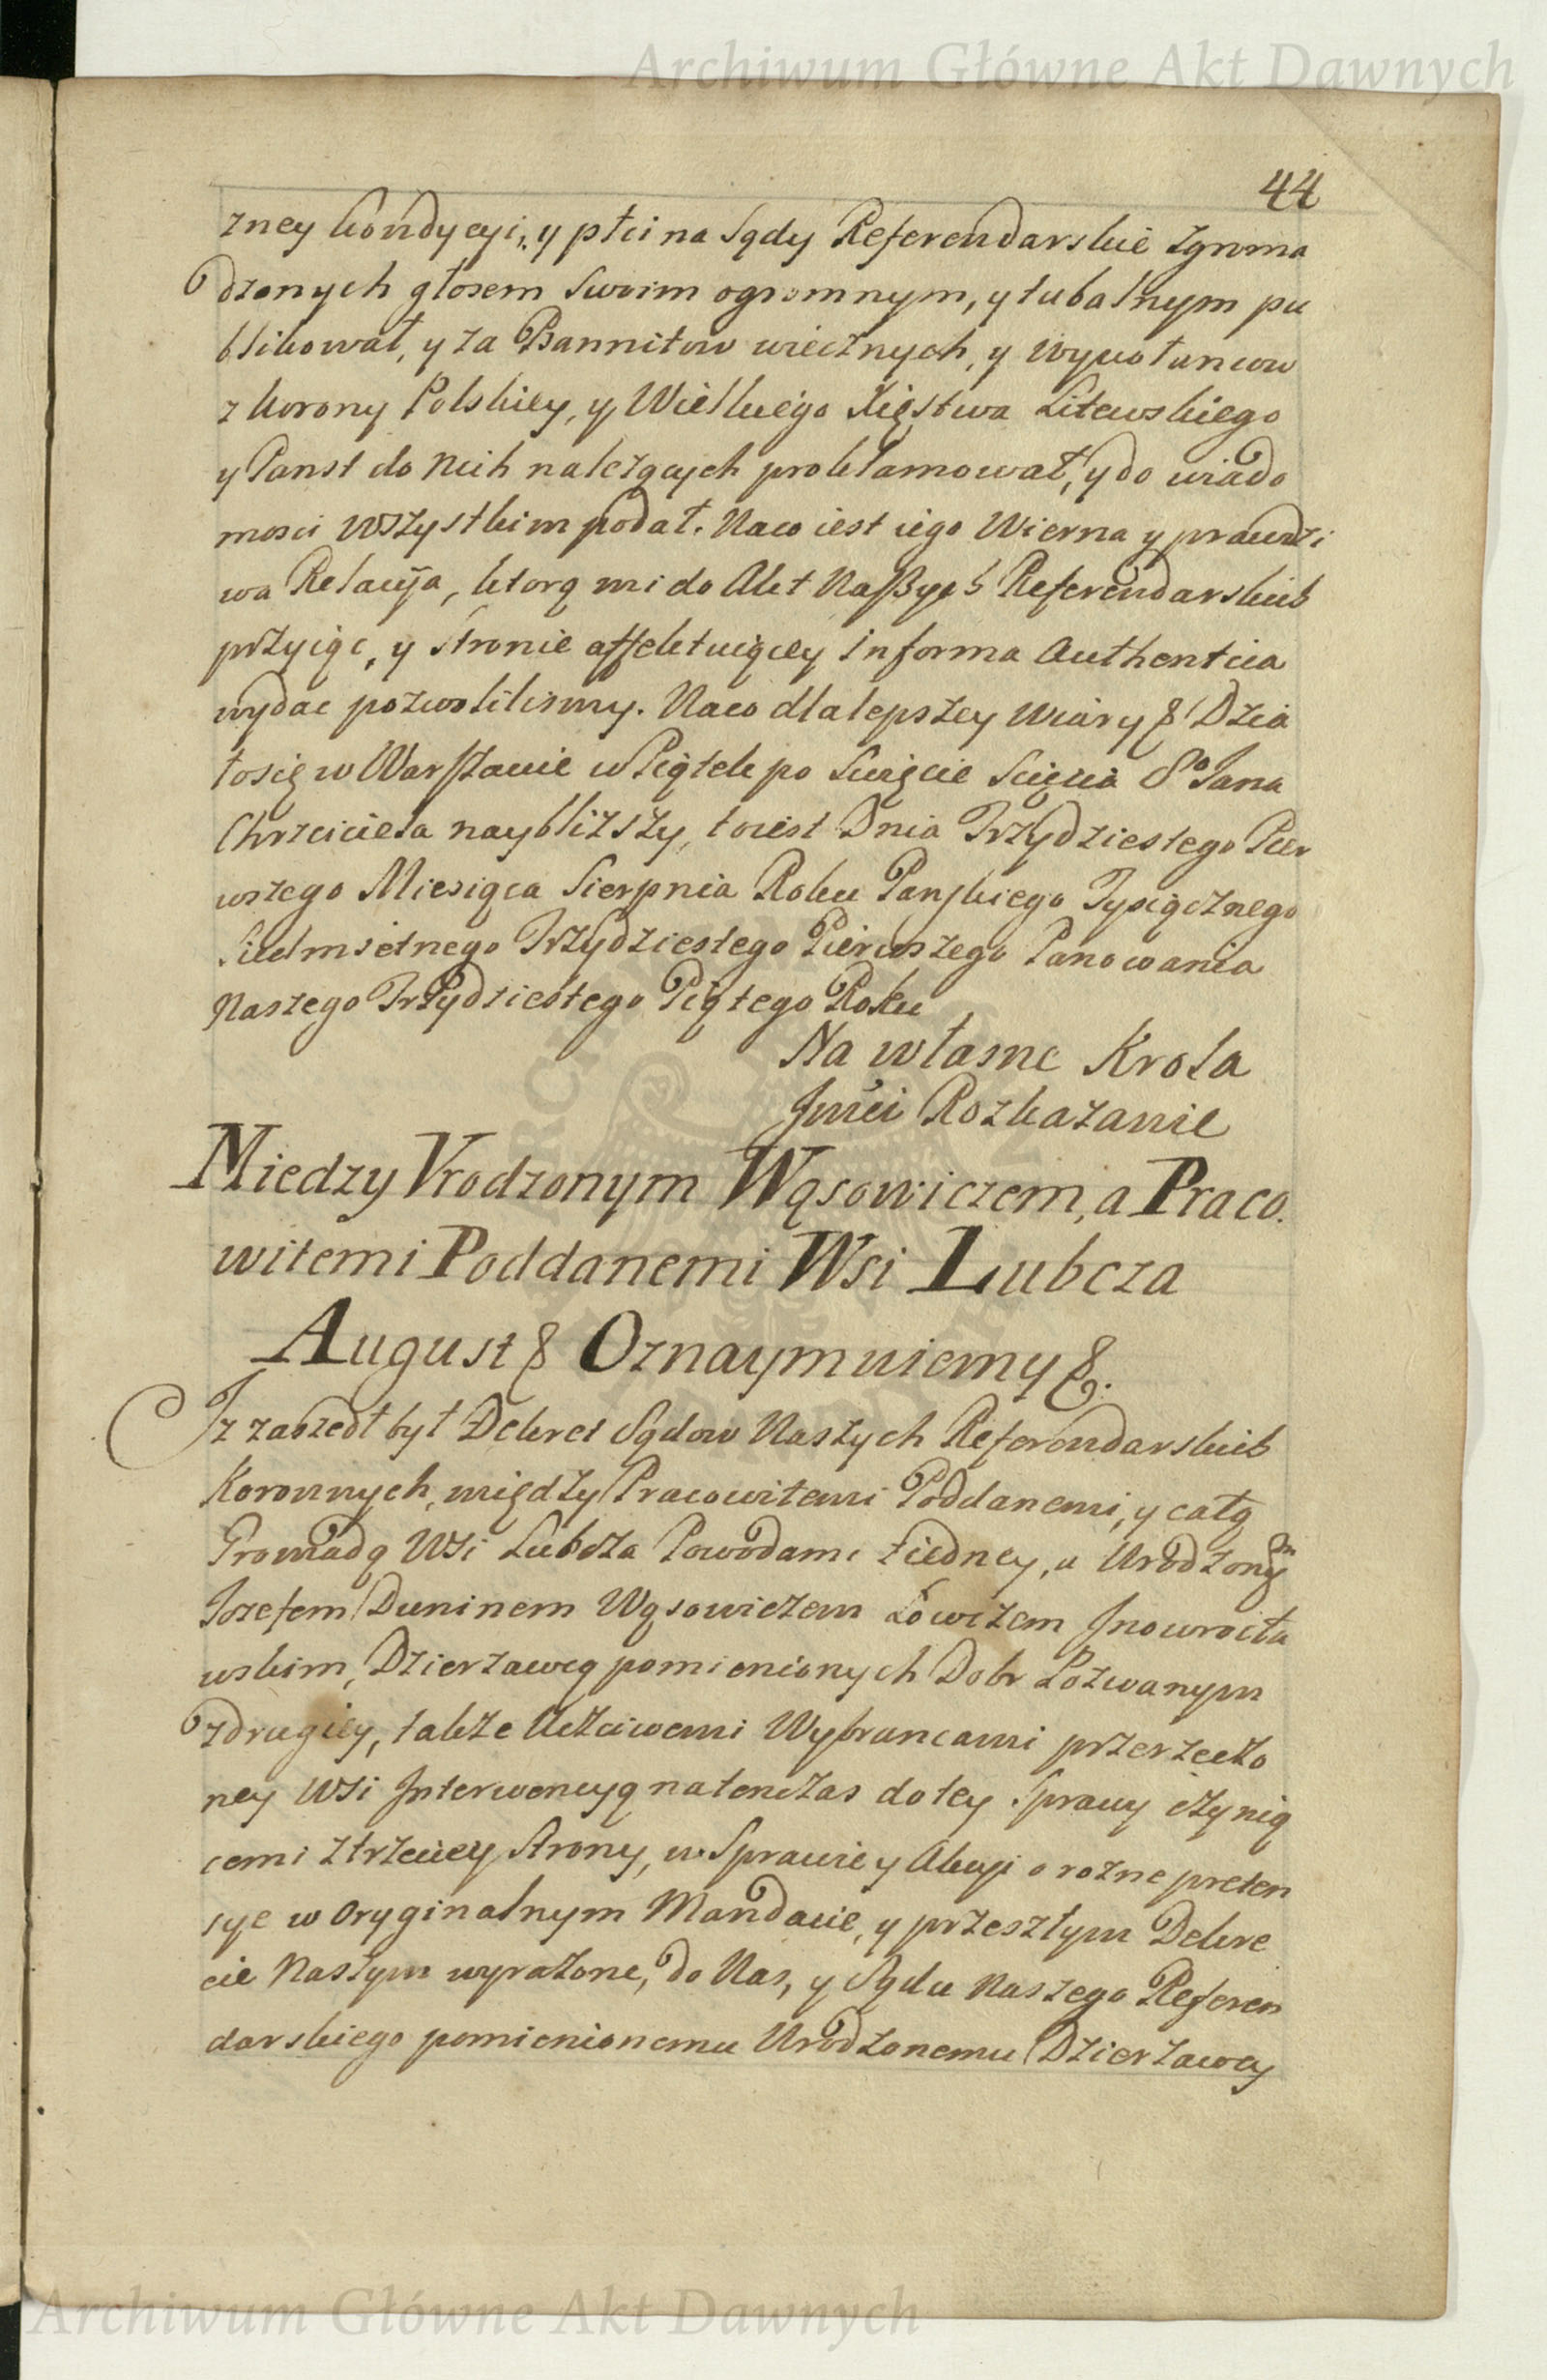 Archiwum Główne Akt Dawnych
44
zney kondycyi, y płci na Sądy Referendarskie zgroma
dzonych głosem swoim ogromnym, y tubalnym pu
blikował, y za Bannitow wiecznych, y wywołancow
z Korony Polskiey, y Wielkiego Xięstwa Litewskiego
y Panst do nich należących proklamował, y do wiado
mosci wszystkim podał. Naco iest iego Wierna y prawdzi
wa Relacyja, ktorą mi do Akt Naszych Referendarskich
przyiąc, y stronie affektuiącey in forma Authentica
wydac pozwolilismy. Naco dla lepszey wiary & Dzia
łosię w Warszawie w Piątek po Święcie Scięcia So Jana
Chrzciciela naybliższy, to iest Dnia Trzydziestego Pier
wszego Miesiąca Sierpnia Roku Panskiego Tysiącznego
Siedmsetnego Trzydziestego Pierwszego Panowania
Naszego Trzydziestego Piątego Roku
Na własne Krola
Jmci Rozkazanie
Miedzy Vrodzonym Wąsowiczem, a Praco.
witemi Poddanemi Wsi Lubcza
August & Oznaymuiemy &.
Iz zaszedł był Dekret Sądow Naszych Referendarskich
Koronnych, między Pracowitemi Poddanemi, y całą
Gromadą Wsi Lubcza Powodami z iedney, a Urodzonym
Jozefem Duninem Wąsowiczem Łowczem Jnowrocła
wskim, Dzierzawcą pomienionych Dobr Pozwanym
z drugiey, także Uczciwemi Wybrancami przerzeczo
ney Wsi Interwencyą natenczas do tey Sprawy czynią
cemi z trzeciey Strony, w Sprawie y Akcyi o rozne preten
sye w Oryginalnym Mandacie, y przeszłym Dekre
cie Naszym wyrażone, do Nas, y Sądu Naszego Referen
darskiego pomienionemu Urodzonemu Dzierzawcy
Archiwum Główne Akt Dawnych